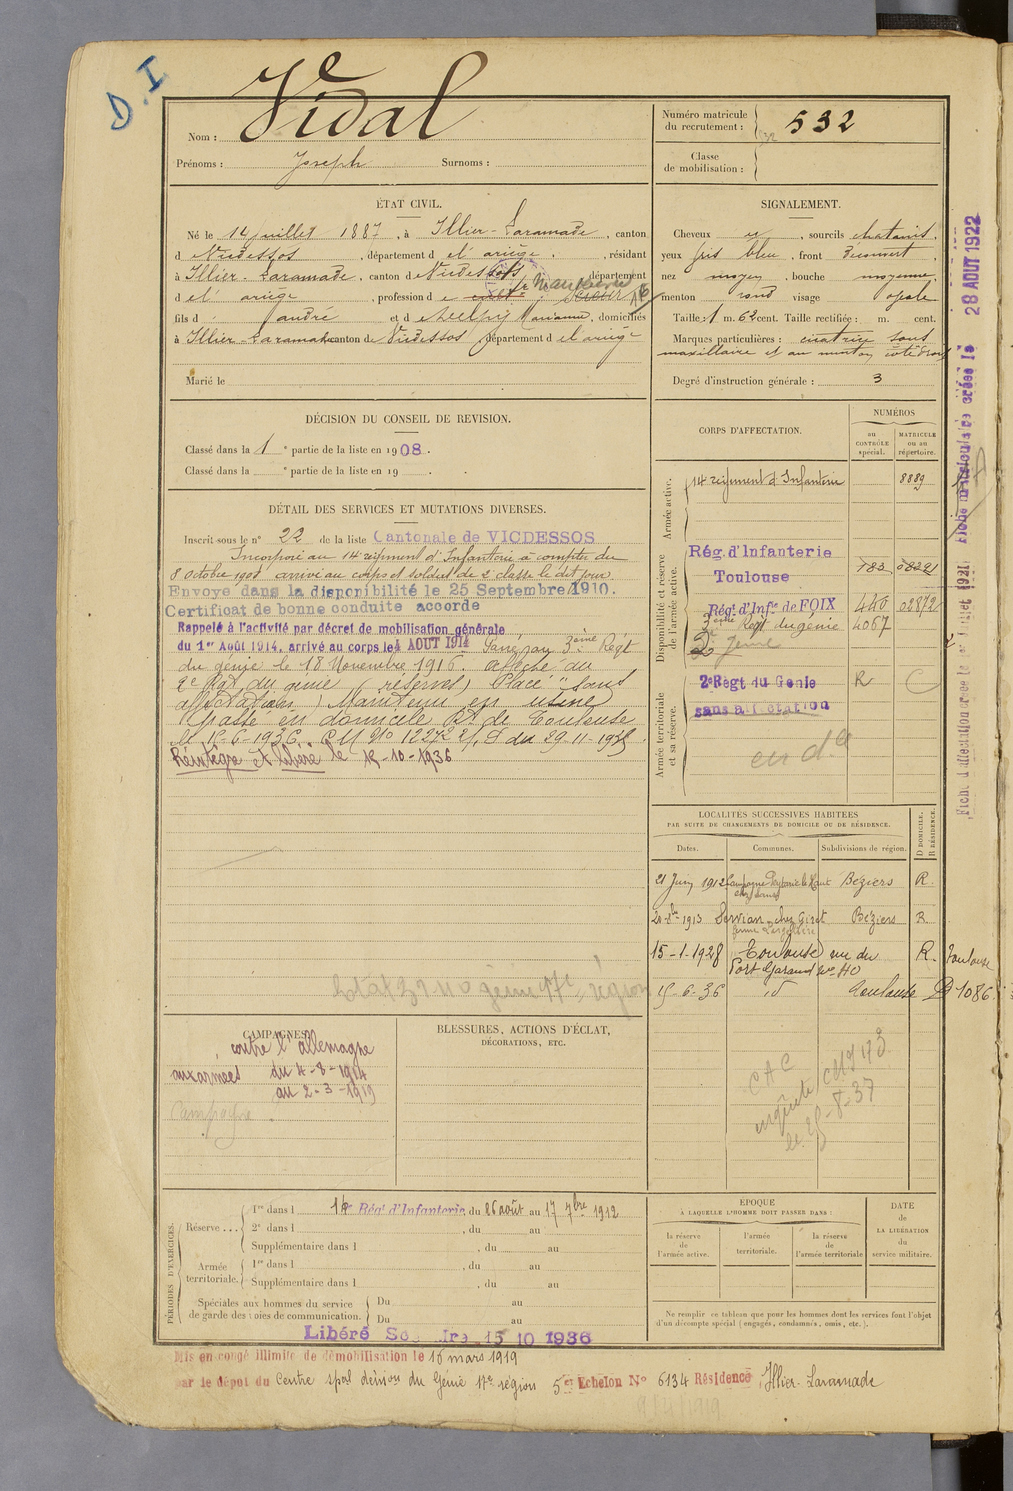 D.I
Nom : Vidal
Prénoms : Joseph Surnoms :
Numéro matricule du recrutement : 532
Classe de mobilisation :
ÉTAT CIVIL.
Né le 14 juillet 1887, à Illier-Laramade, canton
d Vicdessos, département d el' ariège, résidant
à Illier-Laramade, canton d Vicdessos, département
d el' ariège, profession d e
fils d andré et d Marianne, domiciliés
à Illier-Laramade canton de Vicdessos département d el ariège
Marié le
SIGNALEMENT.
Cheveux , sourcils chatains,
yeux gris bleu, front découvert,
nez moyen, bouche moyenne,
menton rond visage ovale
Taille : 1 m. 62 cent. Taille rectifiée : m. cent.
Marques particulières : cicatrice sous
maxillaire et au menton côté droit
Degré d'instruction générale : 3
DÉCISION DU CONSEIL DE REVISION.
Classé dans la 1 e partie de la liste en 1908.
Classé dans la e partie de la liste en 19 .
DÉTAIL DES SERVICES ET MUTATIONS DIVERSES.
Inscrit sous le n° 22 de la liste Cantonale de VICDESSOS
Incorporé au 14 régiment d'Infanterie à compter du
8 octobre 1908 arrivé au corps et soldat de 2 classe le dit jour
Envoyé dans la disponibilité le 25 Septembre 1910.
Certificat de bonne conduite accordé
Rappelé à l'activité par décret de mobilisation générale
du 1er Août 1914, arrivé au corps le 4 AOUT 1914 Passé au 3eme Régt
du génie le 18 Novembre 1916. affecté au
2e Rgt du génie (réserves) Placé "sans
affectation" Maintenu en usine
Passé en domicile Rt de Toulouse
le 15-6-1936.
Réintégré et libéré le 15-10-1936
CORPS D'AFFECTATION.
NUMÉROS
au CONTRÔLE spécial.
MATRICULE ou au répertoire.
Armée active.
14 régiment d'Infanterie 8889
Disponibilité et réserve de l'armée active.
Rég. d'Infanterie
Toulouse
Régt d'Infie de FOIX 440 02872
3eme Régt du génie 4067
2e génie
Armée territoriale et sa réserve.
2e Régt du Génie R
sans affectation
en dce
LOCALITÉS SUCCESSIVES HABITÉES
PAR SUITE DE CHANGEMENTS DE DOMICILE OU DE RÉSIDENCE.
Dates. Communes. Subdivisions de région. D DOMICILE. R RÉSIDENCE.
21 Juin 1912 Béziers R.
1913 Servian chez Giret Béziers R.
15-1-1928 Toulouse rue du R. Toulouse
Port Garaud No 40
15-6-36 id Toulouse D 1086
CAMPAGNES
contre l'allemagne
aux armées du 4-8-1914
au 2-3-1919
Campagne
BLESSURES, ACTIONS D'ÉCLAT,
DÉCORATIONS, ETC.
PÉRIODES D'EXERCICE.
Réserve ... 1re dans l 14e Régt d'Infanterie du 26 août au 17 7bre 1912
2e dans l , du au
Supplémentaire dans l , du au
Armée territoriale. 1re dans l , du au
Supplémentaire dans l , du au
Spéciales aux hommes du service de garde des voies de communication. Du au
Du au
Libéré 15 10 1936
ÉPOQUE
À LAQUELLE L'HOMME DOIT PASSER DANS :
la réserve de l'armée active. l'armée territoriale. la réserve de l'armée territoriale
DATE de LA LIBÉRATION du service militaire.
Ne remplir ce tableau que pour les hommes dont les services font l'objet d'un décompte spécial (engagés, condamnés, omis, etc.).
Mis en congé illimité de démobilisation le 15 mars 1919
par le dépôt du Centre Génie 17e région 5e Echelon No 6134 Résidence Illier-Laramade
28 AOUT 1922